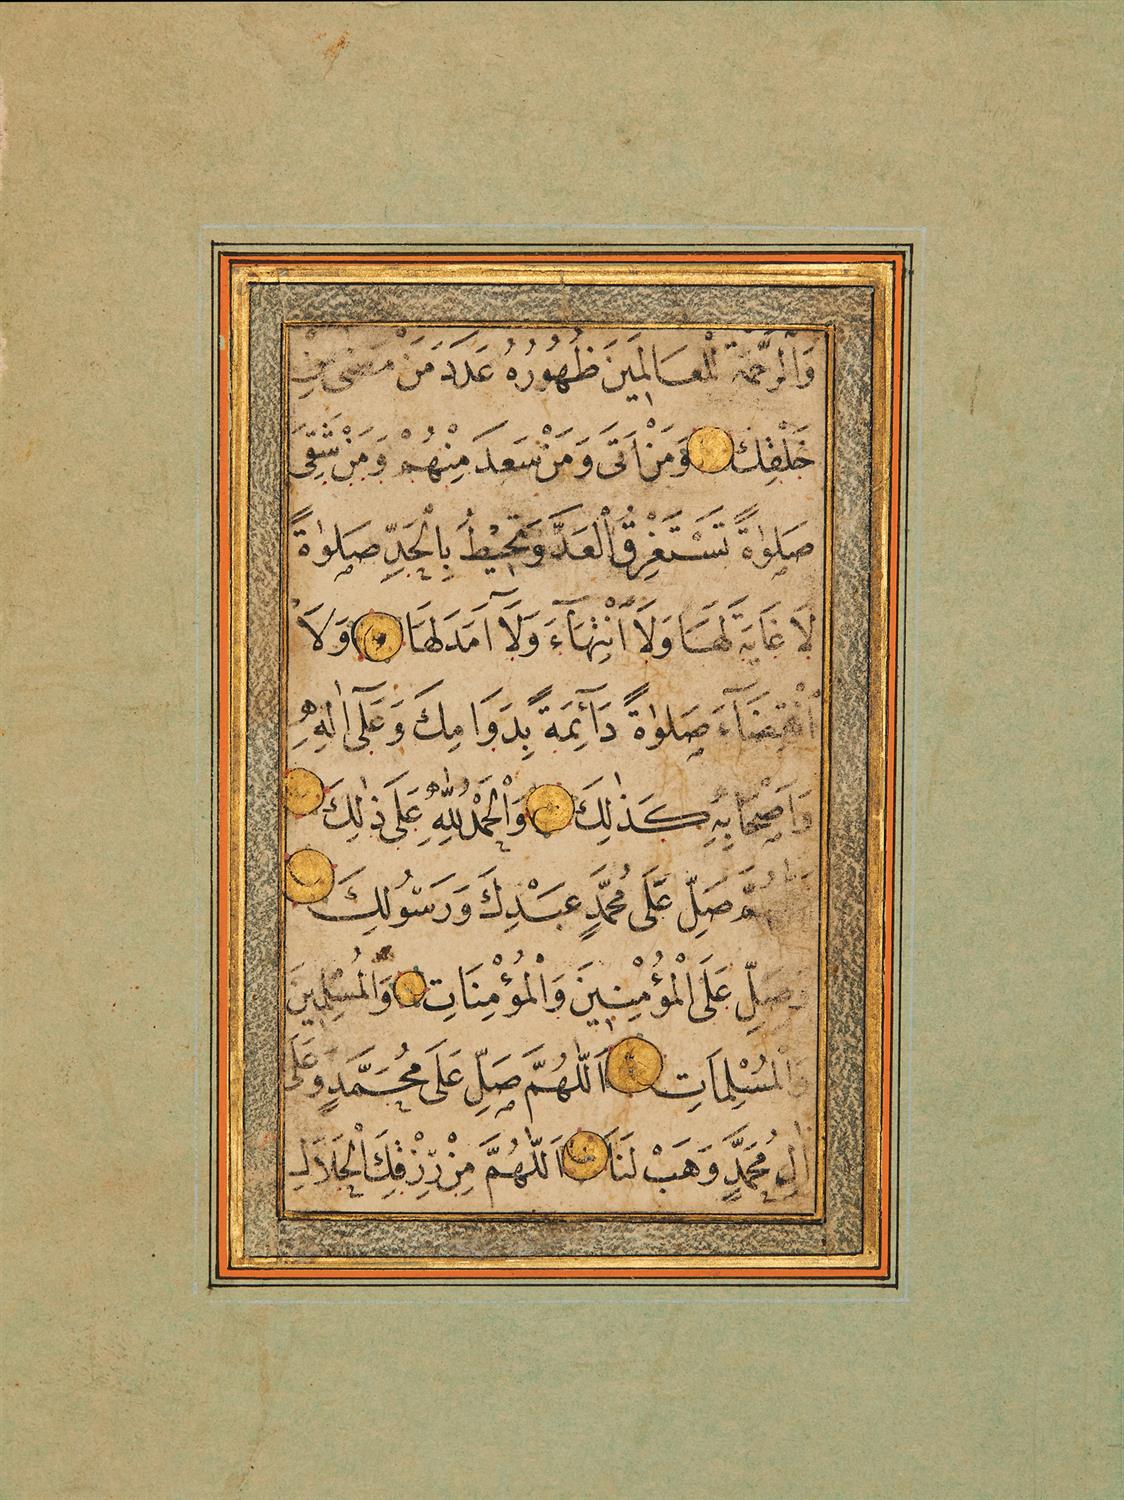 وَالرَّحْمَةُ لِلْعَالَمِينَ ظُهُورُهُ عَدَدَ مَنْ مَضَى مِنْ
خَلْقِكَ وَمَنْ اَتَى وَمَنْ سَعِدَ مِنْهُمْ وَمَنْ شَقِىَ
صَلٰوةً تَسْتَغْرِقُ الْعَدَّ وَتُحِيْطُ بِالْحَدِّ صَلٰوةً
لَا غَايَةَ لَهَا وَلَا انْتِهَآءَ وَلَآ اَمَدَ لَهَا وَلَا
انْقِضَآءَ صَلٰوةً دَآئِمَةً بِدَوَامِكَ وَعَلٰٓى اٰلِهِ
وَاَصْحَابِهِ كَذٰلِكَ وَالْحَمْدُ لِلّٰهِ عَلَى ذٰلِكَ
اَللّٰهُمَّ صَلِّ عَلَى مُحَمَّدٍ عَبْدِكَ وَرَسُولِكَ
وَصَلِّ عَلَى الْمُؤْمِنِينَ وَالْمُؤْمِنَاتِ وَالْمُسْلِمِينَ
وَالْمُسْلِمَاتِ اَللّٰهُمَّ صَلِّ عَلَى مُحَمَّدٍ وَعَلَى
اٰلِ مُحَمَّدٍ وَهَبْ لَنَا اَللّٰهُمَّ مِنْ رِزْقِكَ الْحَلَالِ